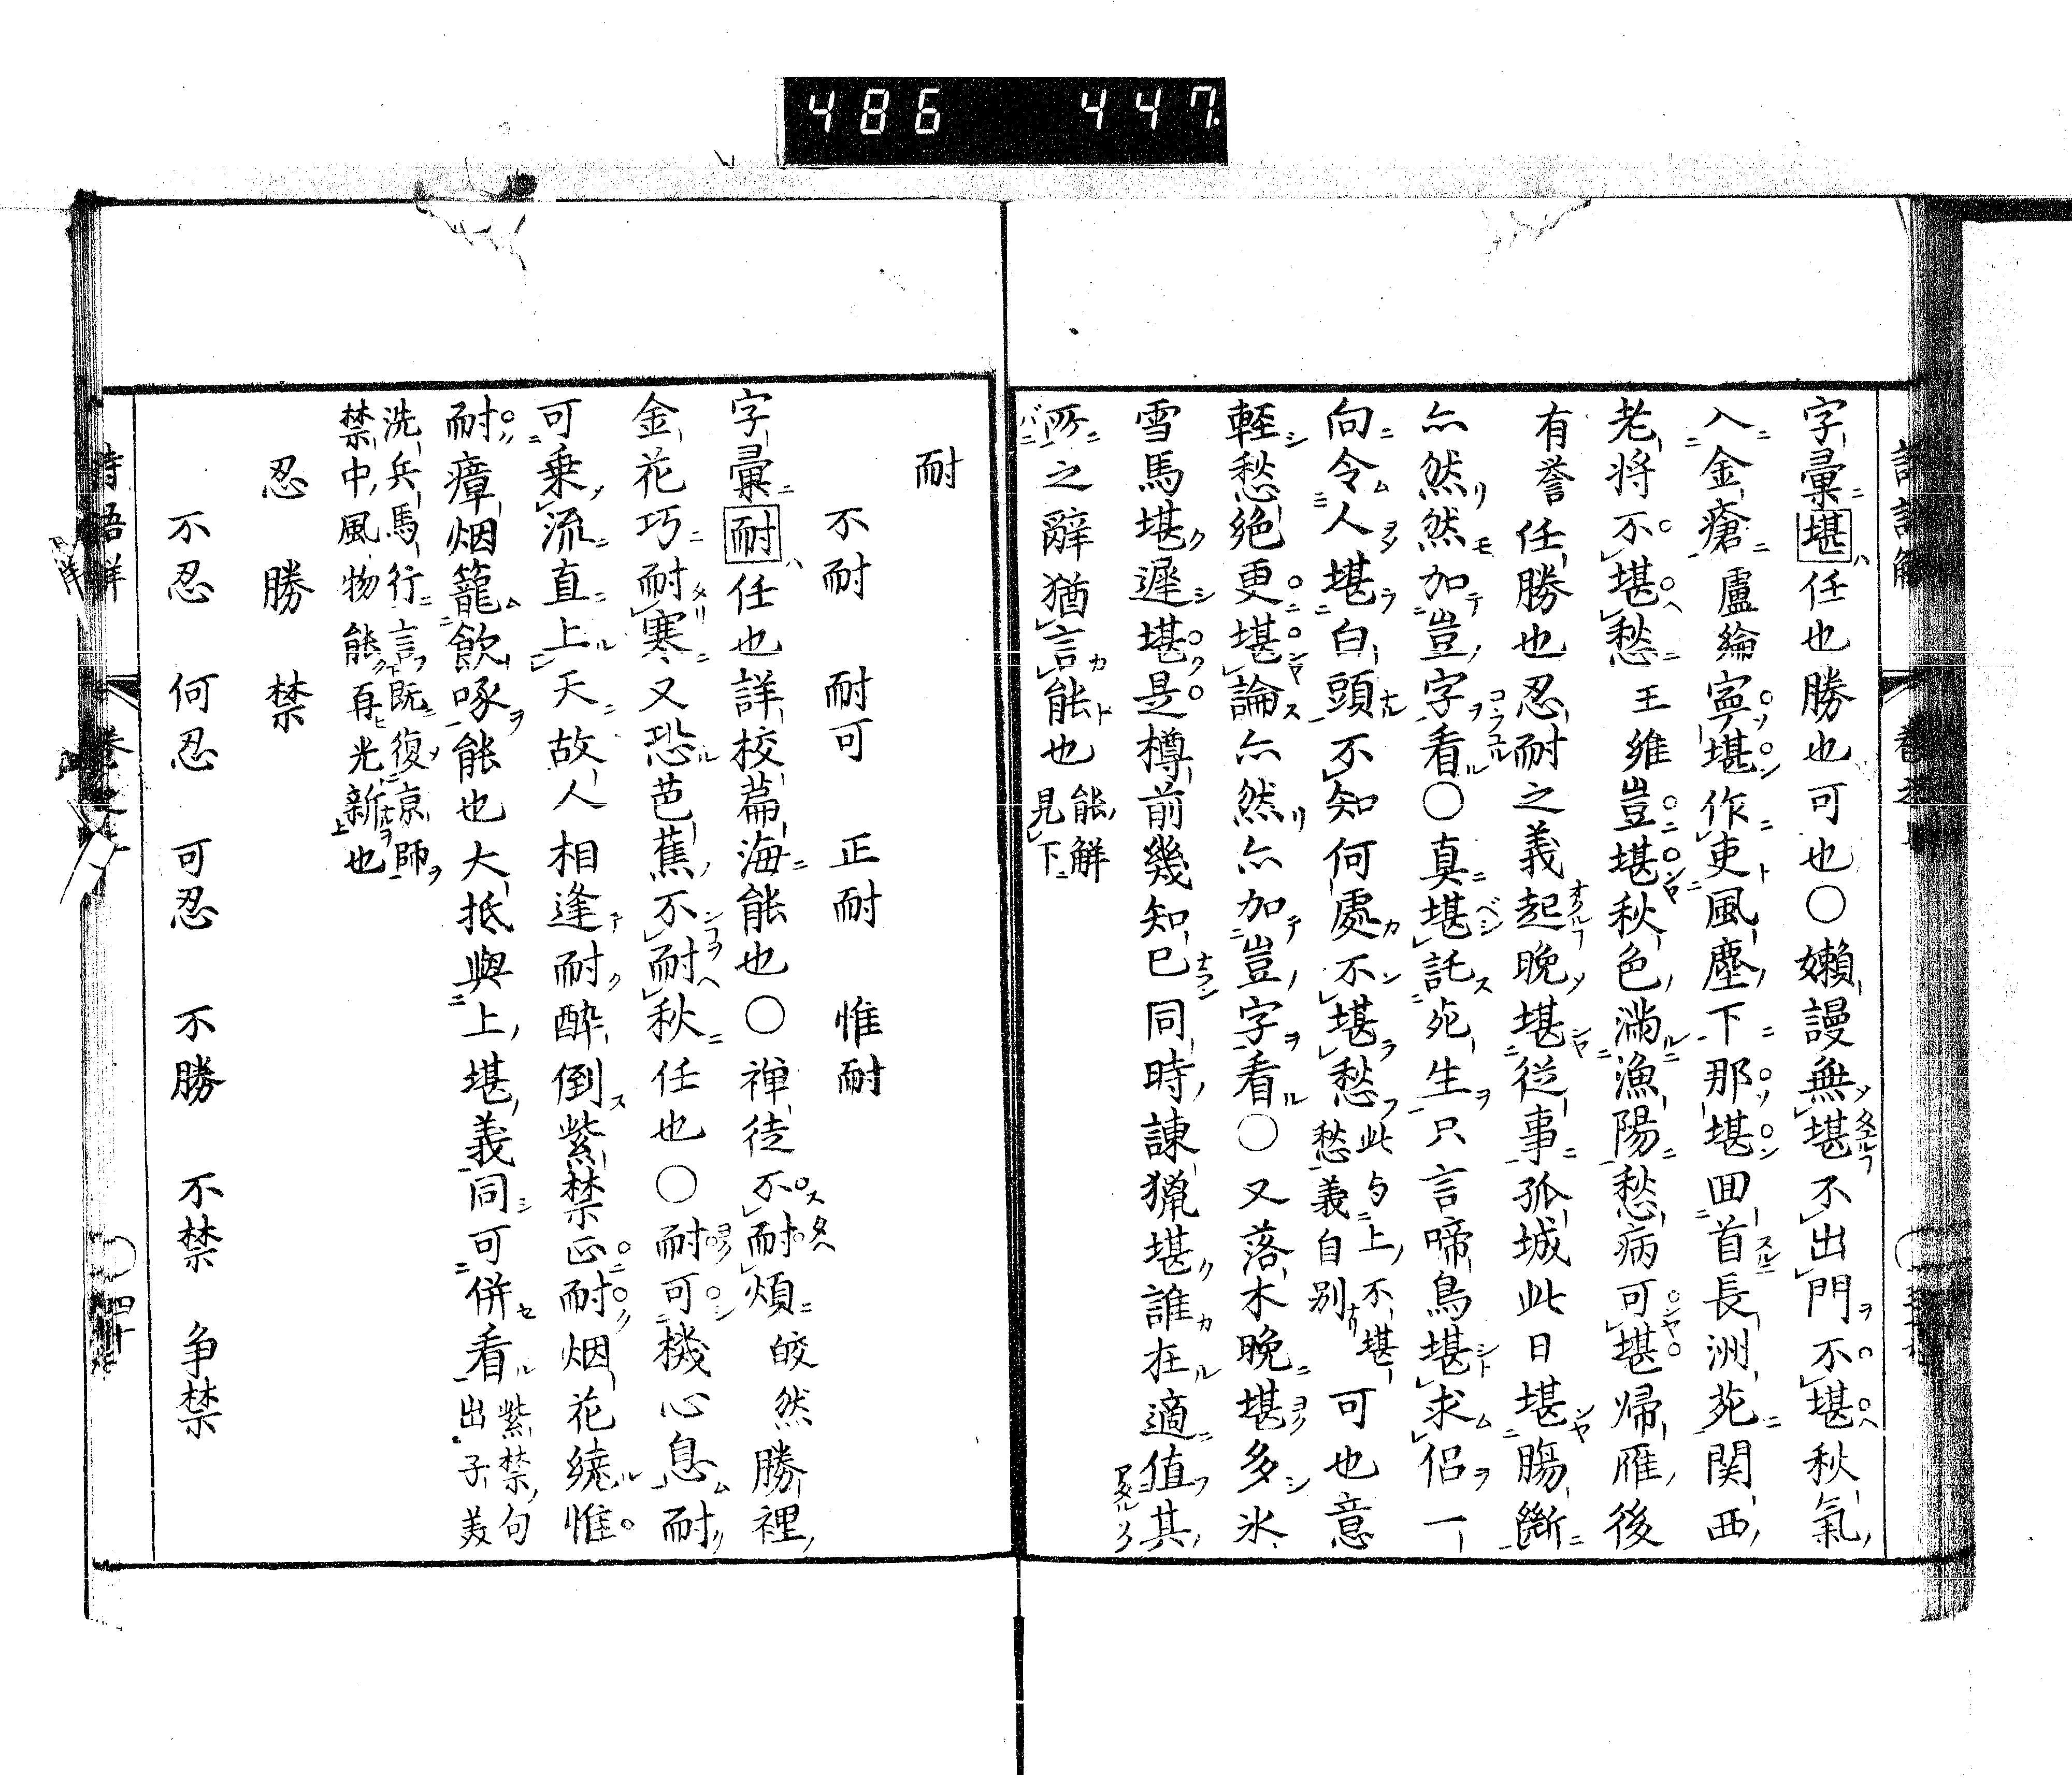 486 447.
字彙堪任也勝也可也○嬾謾無堪不出門不堪秋氣
入金瘡盧綸寧堪作吏風塵下那堪回首長洲苑関西
老将不堪愁王維豈堪秋色満漁陽愁病可堪帰雁後
有誉任勝也忍耐之義起晩堪従事孤城此日堪腸断
亦然然加豈字看○真堪託死生只言啼鳥堪求侶一
向令人堪白頭不知何處不堪愁此与上不堪愁義自別可也意
軽愁絶更堪論亦然亦加豈字看○又落木晩堪多氷
雪馬堪遅堪是樽前幾知已同時諌猟堪誰在適値其
所之辞猶言能也能解見下
耐
不耐 耐可 正耐 惟耐
字彙耐任也詳校篇海能也○禅徒不耐煩皎然勝裡
金花巧耐寒又恐芭蕉不耐秋任也○耐可機心息耐
可乗流直上天故人相逢耐酔倒紫禁正耐烟花繞惟
耐瘴烟籠飲啄能也大抵與上堪義同可併看紫禁句出子美
洗兵馬行言既復京師
禁中風物能再光新也
忍 勝 禁
不忍 何忍 可忍 不勝 不禁 争禁
詩語解 巻之上
四十